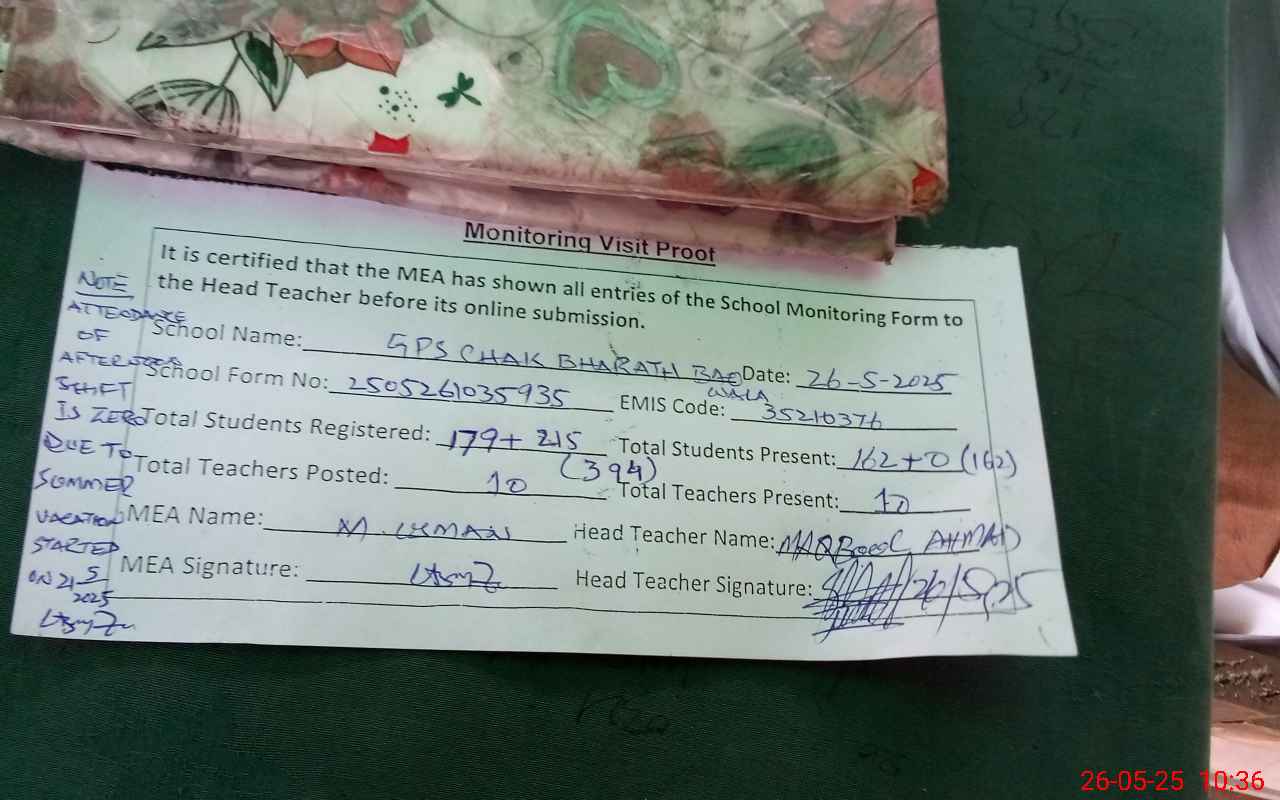 Monitoring Visit Proof
It is certified that the MEA has shown all entries of the School Monitoring Form to
the Head Teacher before its online submission.
School Name: GPS CHAK BHARATH BAO WALA Date: 26-5-2025
School Form No: 2505261035935 EMIS Code: 35210376
Total Students Registered: 179+ 215 (394) Total Students Present: 162+0 (162)
Total Teachers Posted: 10 Total Teachers Present: 10
MEA Name: M. USMAN Head Teacher Name: MAQBOOL AHMAD
MEA Signature: Head Teacher Signature: 26/5/25
NOTE
ATTENDANCE
OF
AFTERNOON
SHIFT
IS ZERO
DUE TO
SUMMER
VACATION
STARTED
ON 21/5/2025
26-05-25 10:36